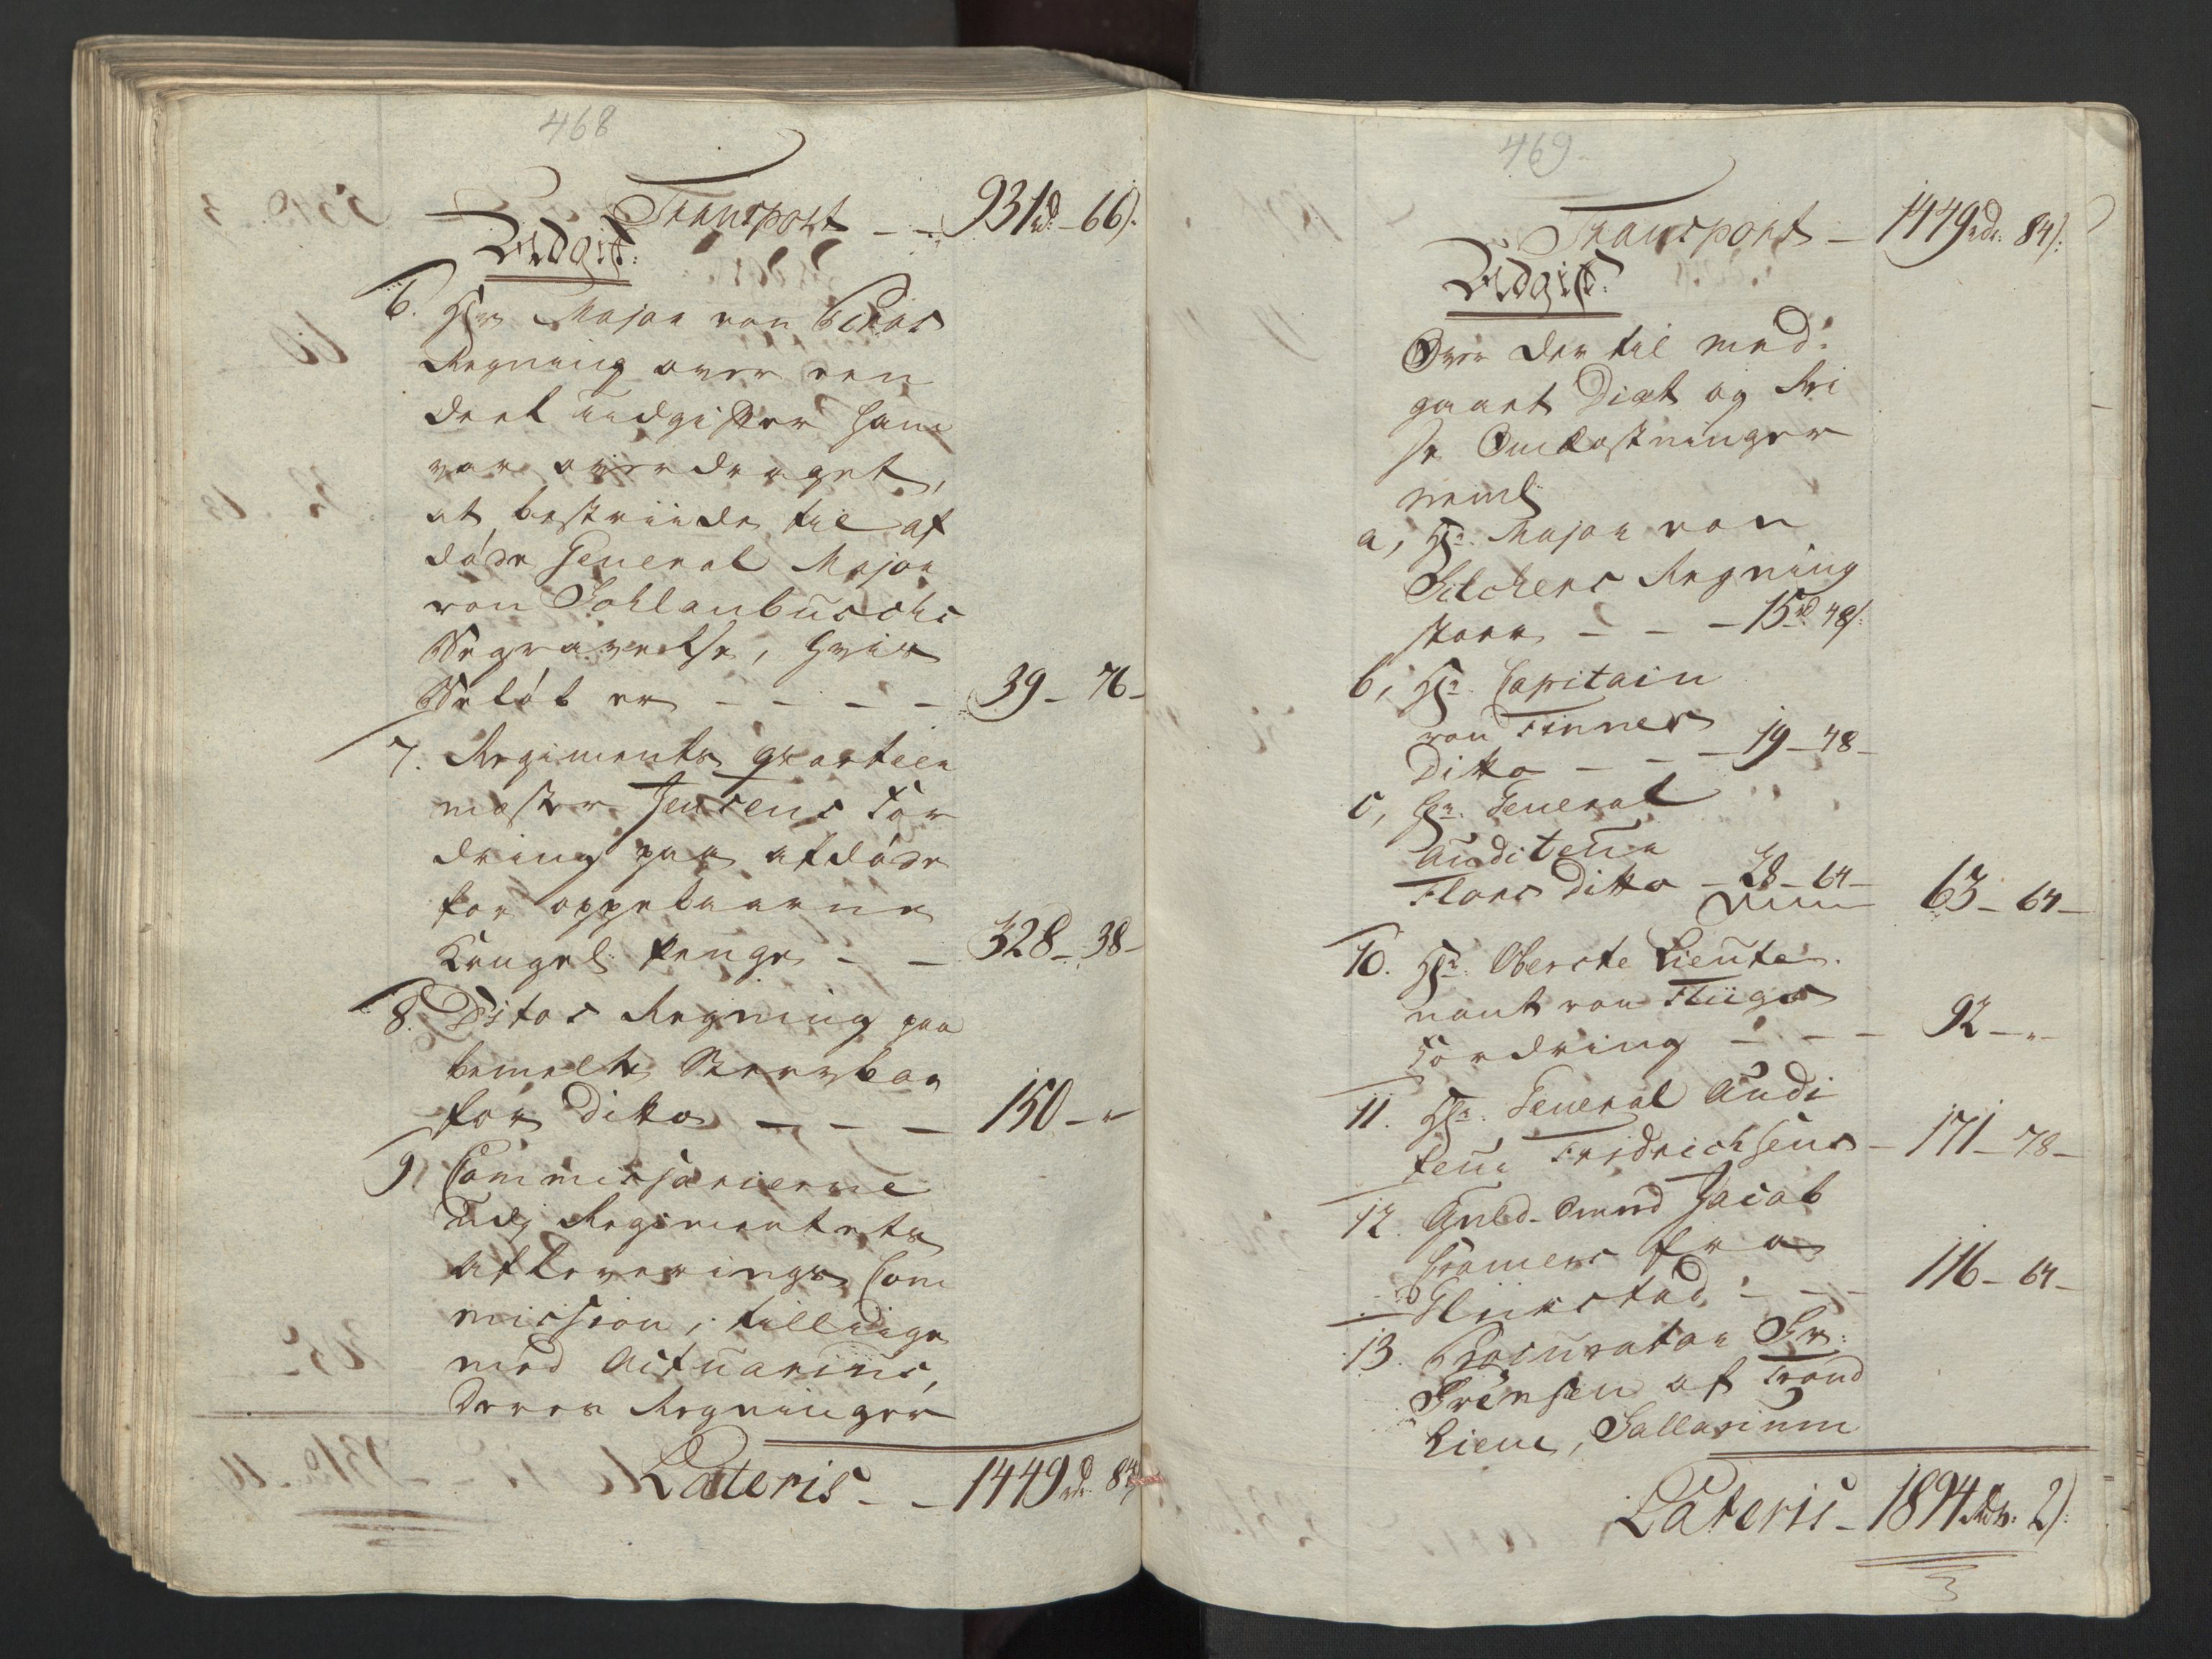 468
Transport - - 931rd - 66s:
Udgift:
6. Hr Major von Ciras
Regning over een
deel Udgifter ham
var overdraget,
at bestriide til af
døde General Major
von Sohlanbuschs
Begravelse, hvis
Beløb er - - - - 39 - 76 -
7. Regiments qvarteer
mester Jensens For
dring paa afdøde
for oppebaarne
Kongel: Penge - - 328 - 38 -
8. Ditos Regning paa
bemelte Stervboe
for Ditto - - - 150 - "
9, Commissarierne
udj Regimentets
Afleverings Com
mission, tillige
med Actuarius,
deres Regninger
Lateris - - 1449rdr. 84s
469
Transport - 1449rdr. 84s:
Udgift:
Over der til med-
gaaet Diæt og Rei
se Omkostninger
neml:
a, Hr. Major von
Silchers Regning
stoer - - - 15rd 48s:
b, Hr. Capitain
von Finnes
Ditto - - - 19 - 48 -
c, Hr. General
Auditeur
Flors Ditto - 28 - 64 - 63 - 64 -
10. Hr. Oberste Lieute-
nant von Flüges
Fordring - - - 92 - " -
11. Hr. General Audi
teur Fridrichsens - 171 - 78 -
12. Guld-Smed Jacob
Cramers fra
Glükstad - - - 116 - 64 -
13. Procurator Fr:
Grønsen af Frond
Liem, Sallarium
Lateris - 1894rdr. 2s: